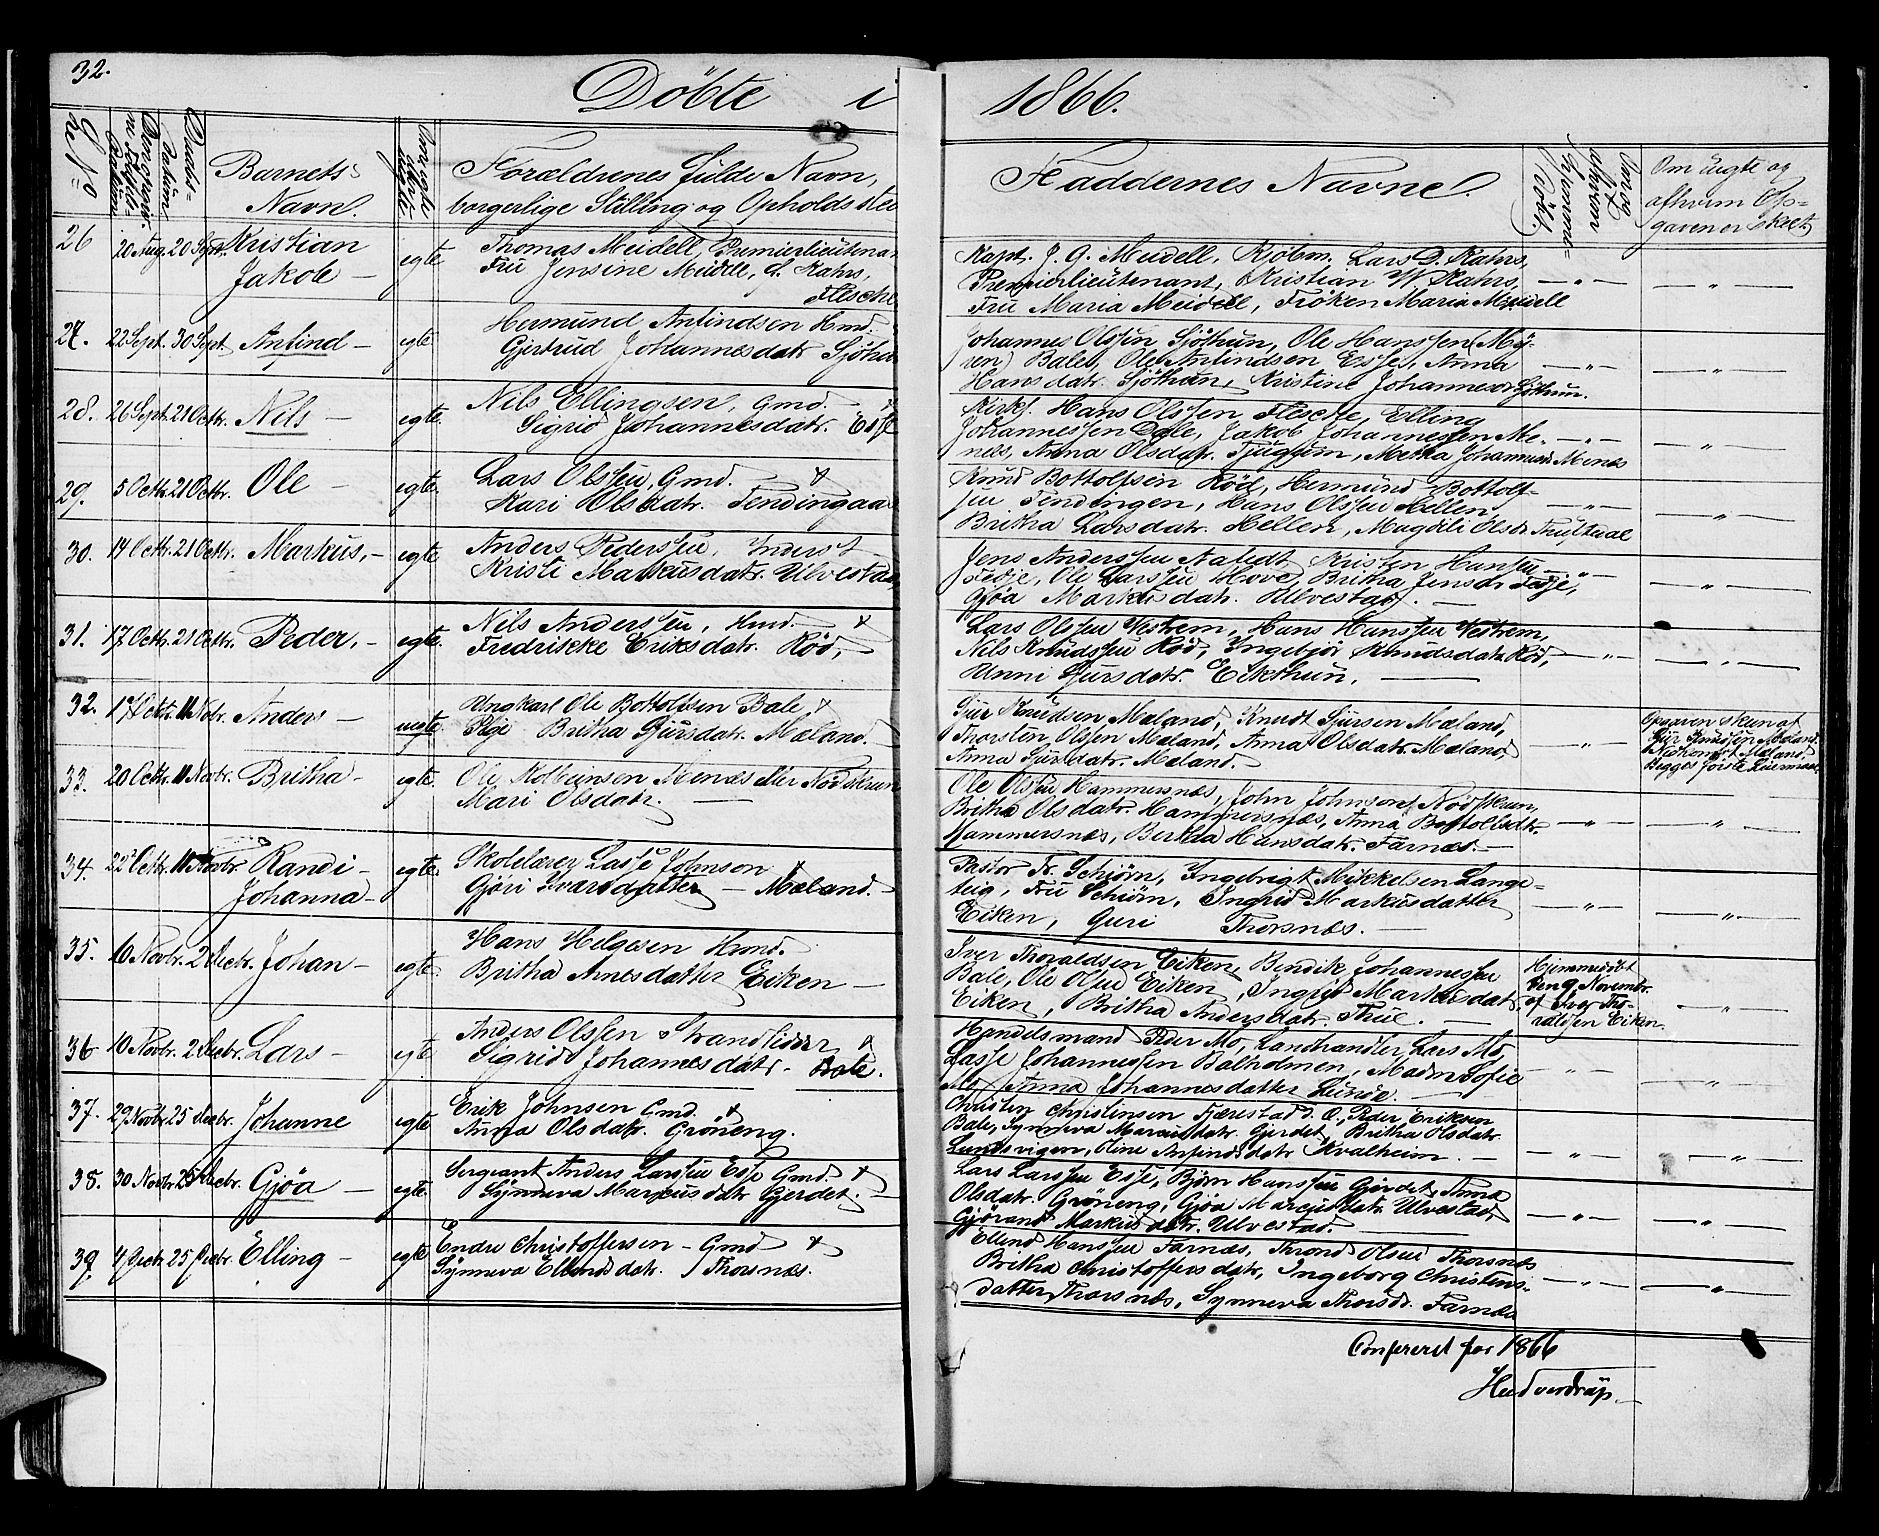 32.
Döbte i
1866.
Barnets
Navn.
Forældrenes fulde Navn,
borgerlige Stilling og Opholds sted
Faddernes Navne.
Om uegte og
afhvem Op-
gaven er skeet
26 20 Aug. 20 Sept. Kristian
Jakob —
egte
Thomas Meidell, Premierlieutenan
Fru Jensine Meidell, f. Kahrs,
Flesche
Kapt. J. G. Meidell, Kjöbm. Lars D. Kahrs,
Premierlieutenant, Kristian W. Kahrs,
Fru Maria Meidell, Fröken Maria Meidell
27. 22 Sept. 30 Sept. Anfind —
egte
Hermund Anfindsen Hmd.
Gjertrud Johannesdatr Sjöthu
Johannes Olsen Sjöthun, Ole Hanssen My-
ren Balet, Ole Anfindsen Esse, Anna
Hansdatr. Sjöthun, Kristine Johannesdr Sjöthun.
28. 26 Sept. 21 Octr. Nils —
egte.
Nils Ellingsen, Gmd
Sigrid Johannesdatr. Esse
Kirks. Hans Olssen Flesche, Elling
Johannessen Dale, Jakob Johannessen Me-
nes, Anna Olsdatr. Tjugum, Metha Johannesdr Menes
29. 5 Octr. 21 Octr. Ole —
egte.
Lars Olssen, Gmd.
Kari Olsdatr. Tendingaa
Knud Bottolfsen Röd, Hermund Bottolf-
sen Tendingen, Hans Olssen Hellen
Britha Larsdatr. Hellen, Magdli Olsdr
30. 14 Octr. 21 Octr. Markus, —
egte
Anders Pederssen, Inderst
Kristi Markusdatr. Ulvestad
Jens Anderssen Nabedt Kristen Hansen
Fedje, Ole Larssen Hove, Britha Jensdr Fedje,
Gjöa Markusdatr. Ulvestad. —
31. 17 Octr. 21 Octr. Peder, —
egte.
Nils Anderssen, Hmd.
Fredrikke Eriksdatr. Röd,
Lars Olssen Vestrem, Hans Hanssen Vestrem,
Nils Knudssen Röd, Ingebjör Knudsdatr Röd,
Unni Sjursdatr. Eikthun. —
32. 17 Octr. 11 Novbr. Anders —
uegte
Ungkarl Ole Bottolfsen Bale
Pige Britha Sjursdatr. Mæland.
Sjur Knudsen Mæland, Knudt Sjursen Mæland,
Thorsten Olssen Mæland, Anna Olsdatr. Mæland
Anna Sjursdatr. Mæland.
Opgaven skeen af
Sjur Knudsen Mæland
Mæland.
Begges förste Leiermaal
33. 20 Octr. 11 Novbr. Britha —
egte.
Ole Kolbeinsen Menæs eller Nödskrun
Mari Olsdatr. —
Ole Olssen Hammersnæs, John Johnson Nödskrun,
Britha Olsdatr. Hammersnæs, Anna Bottolfsdtr.
Hammersnæs, Bertha Hansdatr. Farnæs. —
34. 22 Octr. 11 Novbr. Randi —
Johanna —
egte.
Skolelærer Lasse Johnson
Gjöri Ivarsdatter — Mæland. —
Pastor Fr. Schiörn, Ingebrigt Mikkelsen Lange-
teig, Fru Schiörn, Ingrid Markusdatter
Eiken, Guri Thorsnæs. —
35. 6 Novbr. 2 Decbr. Johan —
egte.
Hans Helgesen Hmd.
Britha Arnesdatter Eiken —
Iver Thoraldsen Eiken, Bendik Johannessen
Bale, Ole Olsen Eiken, Ingrid Markusdatr.
Eiken, Britha Andersdatr. Thue. —
Hjemmedöbt
den 9. Novembr.
af Iver Tho-
raldsen Eiken
36 10 Novbr. 2 Decbr. Lars —
egte.
Anders Olssen Strandsidder
Sigrid Johannesdatr. — Bale.
Handelsmand Peder Mo, Landhandler Lars Mo,
Lasse Johannessen Balholmen, Madm Sofie
Mo, Anna Johannesdatter Lunde. —
37. 29 Novbr. 25 Decbr. Johanne
egte
Erik Johnsen Gmd.
Anna Olsdatr. Gröneng.
Christen Christensen Fjærestad, Peder Eriksen
Bale, Synneva Marcusdatr. Gjerdet, Britha Olsdatr.
Lundsvigen, Oline Anfindsdatr Kvalheim. —
38. 30 Novbr. 25 Decbr. Gjöa —
egte.
Sergeant Anders Larssen Esse Gmd
Synneva Marcusdatr Gjerdet. —
Lars Larssen Esse, Björn Hanssen Gjerdet, Anna
Olsdatr. Gröneng, Gjöa Marcusdatr. Ulvestad,
Gjörand Markusdatr. Ulvestad. —
39. 4 Decbr. 25 Decbr. Elling —
egte.
Endre Christoffersen — Gmd
Synneva Ellendsdatr. Thorsnæs.
Ellend Hanssen Farnæs, Thrond Olsen Thorsnæs
Britha Christoffersdatr, Ingeborg Christens-
datter Thorsnæs, Synneva Thorsdr. Farnæs
Confereret for 1866